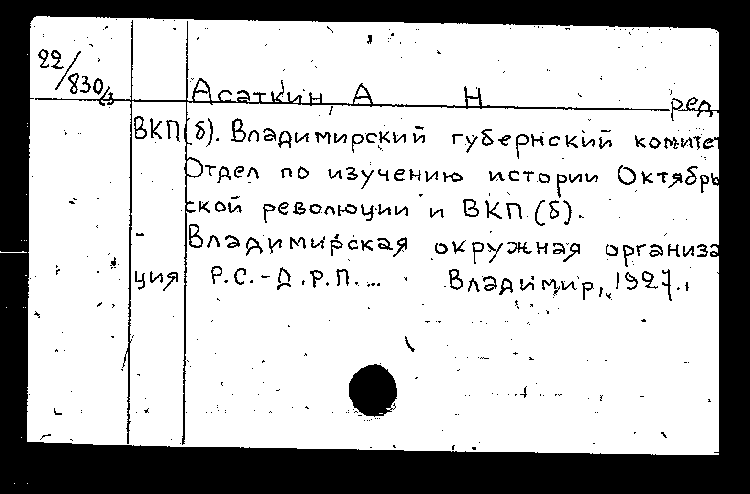 22/830/3
Асаткин, А Н ред
ВКП(б). Владимирский губернский комитет
Отдел по изучению истории Октябрь
ской революции и ВКП (б).
Владимирская окружная организа
ция Р.С.-Д.Р.П.... Владимир, 1927.,